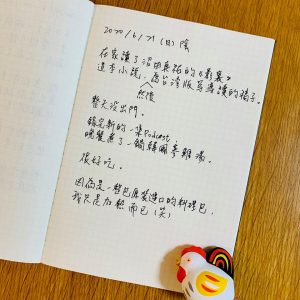 2020/6/21 (日) 陰
在家讀了沼田真祐的《影裏》
這本小說,為台灣版寫導讀的稿子。
然後
整天沒出門。
錄完新的一集Podcast
晚餐煮了一鍋韓國蔘雞湯
很好吃。
因為是一整包原裝進口的料理包,
我只是加熱而已(笑)